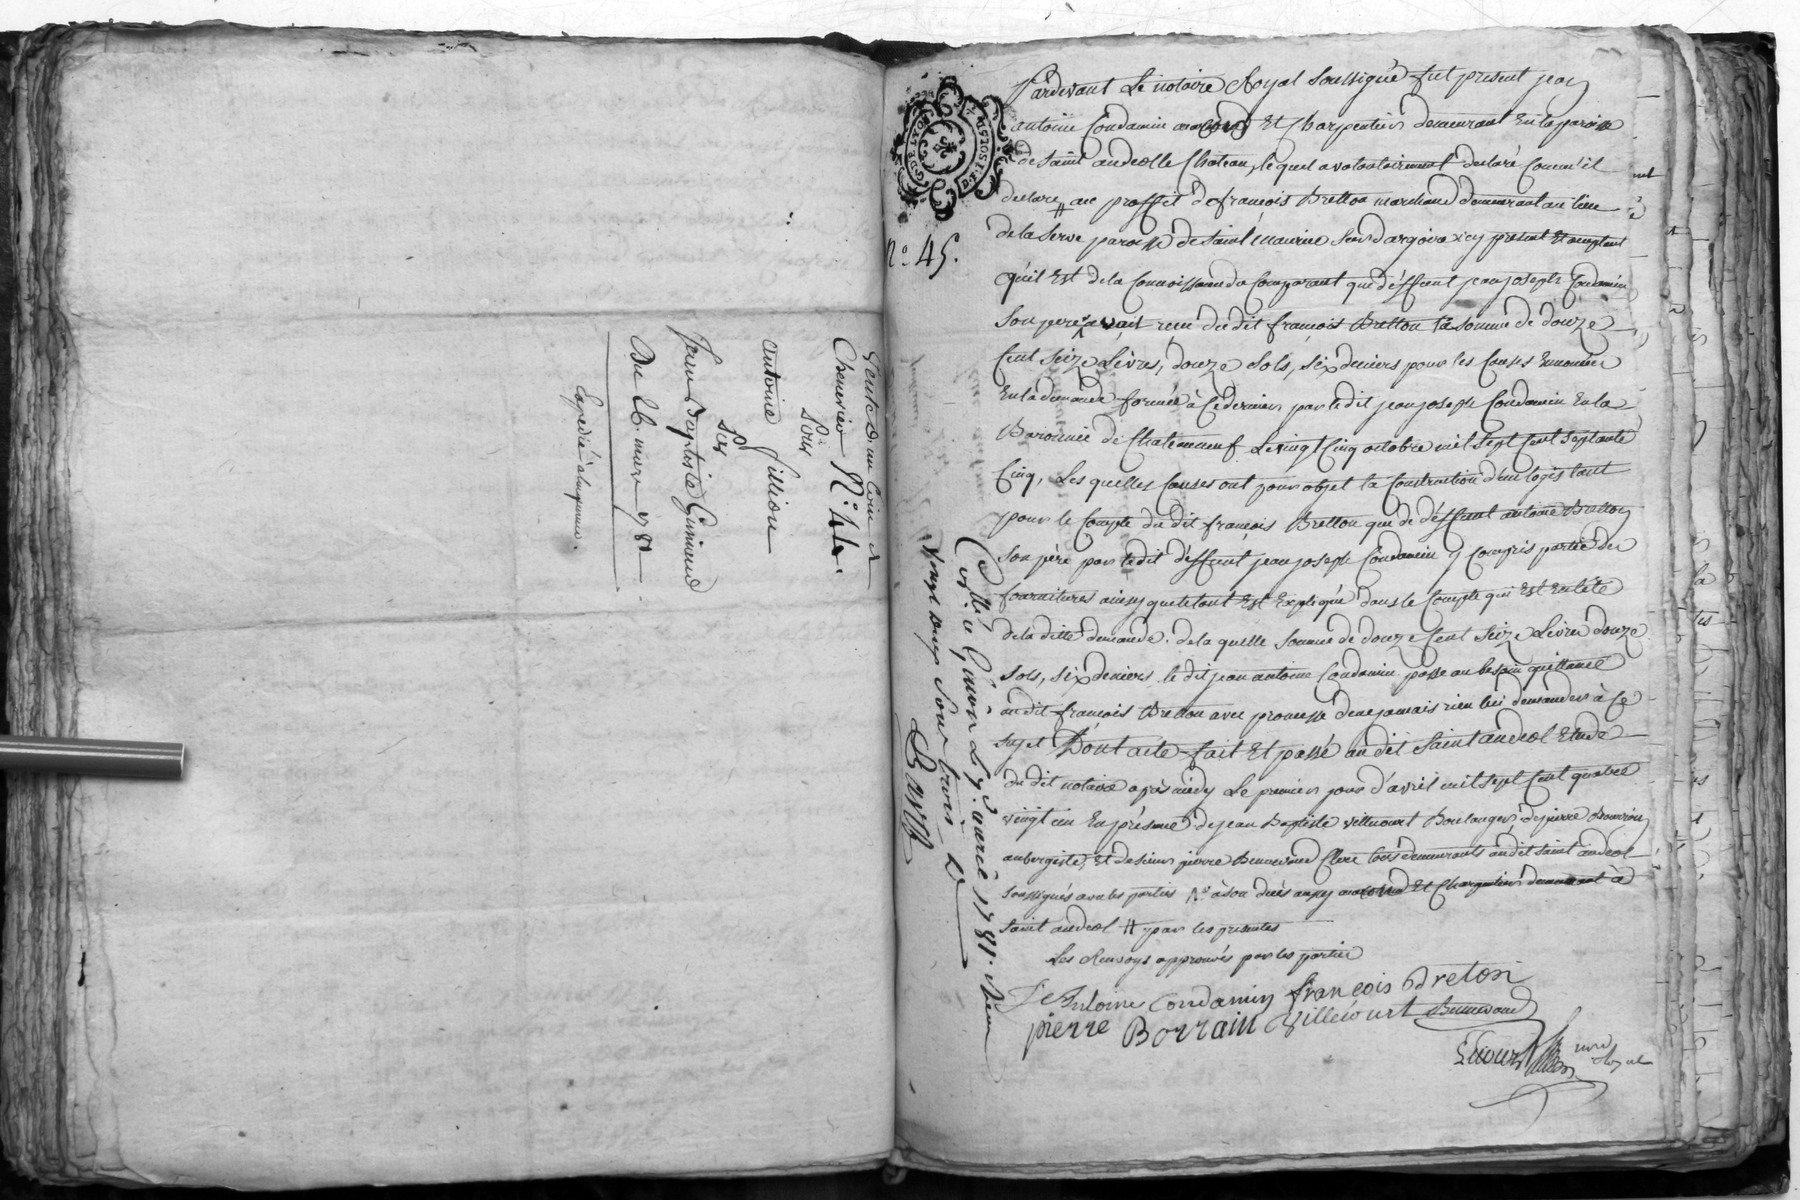 Vente d'un coin de
Chenevier N.o 44.
Pour
antoine Fillion
Par
Jean Baptiste Guinand
Du 26. mars 1781
Expedié a l'acquereur.
G. DE LYON
DEUX SOLS
N.o 45.
Pardevant Le notoire Royal Soussigné fut present jean
antoine Condamin macond Et Charpentier demeurant En la paroisse
de saint andeolle Chateau, lequel a volontairement declaré Comm'il
declare # au proffit de françois Bretton marchand demeurant au lieu
de la Serve paroisse de saint Maurice Sur dargoire icy present Et acceptant
qu'il Est de la Connoissance du Comparant que deffunt jean joseph Condamin
Son pere avait reçu du dit françois Bretton la somme de douze
Cent Seize Livres, douze Sols, Six deniers pour les Causes Enoncées
En la demande formée à Ce dernier par le dit jean joseph Condamin En la
Baronnie de Chateauneuf Le vingt Cinq octobre mil sept Cent septante
Cinq, Les quelles Causes ont pour objet la Construction d'un logis tant
pour le Compte du dit françois Bretton que de deffunt antoine Bretton
Son père par le dit deffunt jean joseph Condamin y Compris partie des
fournitures ainsy que le tout Est Expliqué dans le Compte qui Est En tête
de la ditte demande. de la quelle Somme de douze Cent Seize Livres douze
Sols, Six deniers le dit jean antoine Condamin passe au besoin quittance
au dit françois Bretton avec promesse de ne jamais rien lui demander à Ce
Sujet Dont acte fait Et passé au dit Saint andeol Etude
du dit notaire après midy Le premier jour d'avril mil sept Cent quatre
vingt un En présence de jean Baptiste villecourt Boulanger, de pierre Bourrin
aubergiste, Et de sieur pierre Clerc tous demeurants au dit saint andeol
Soussignés avec les parties à son decès aussy macond Et Charpentier demeurant à
saint andeol # par les presentes
Les Renvoys approuvés par les parties
Je Antoine Condamin françois Breton
pierre Borrain Villecourt
no.re Royal
Con.lé a Givors Le 7. avril 1781. Reçu
vingt deux Sous trois d.